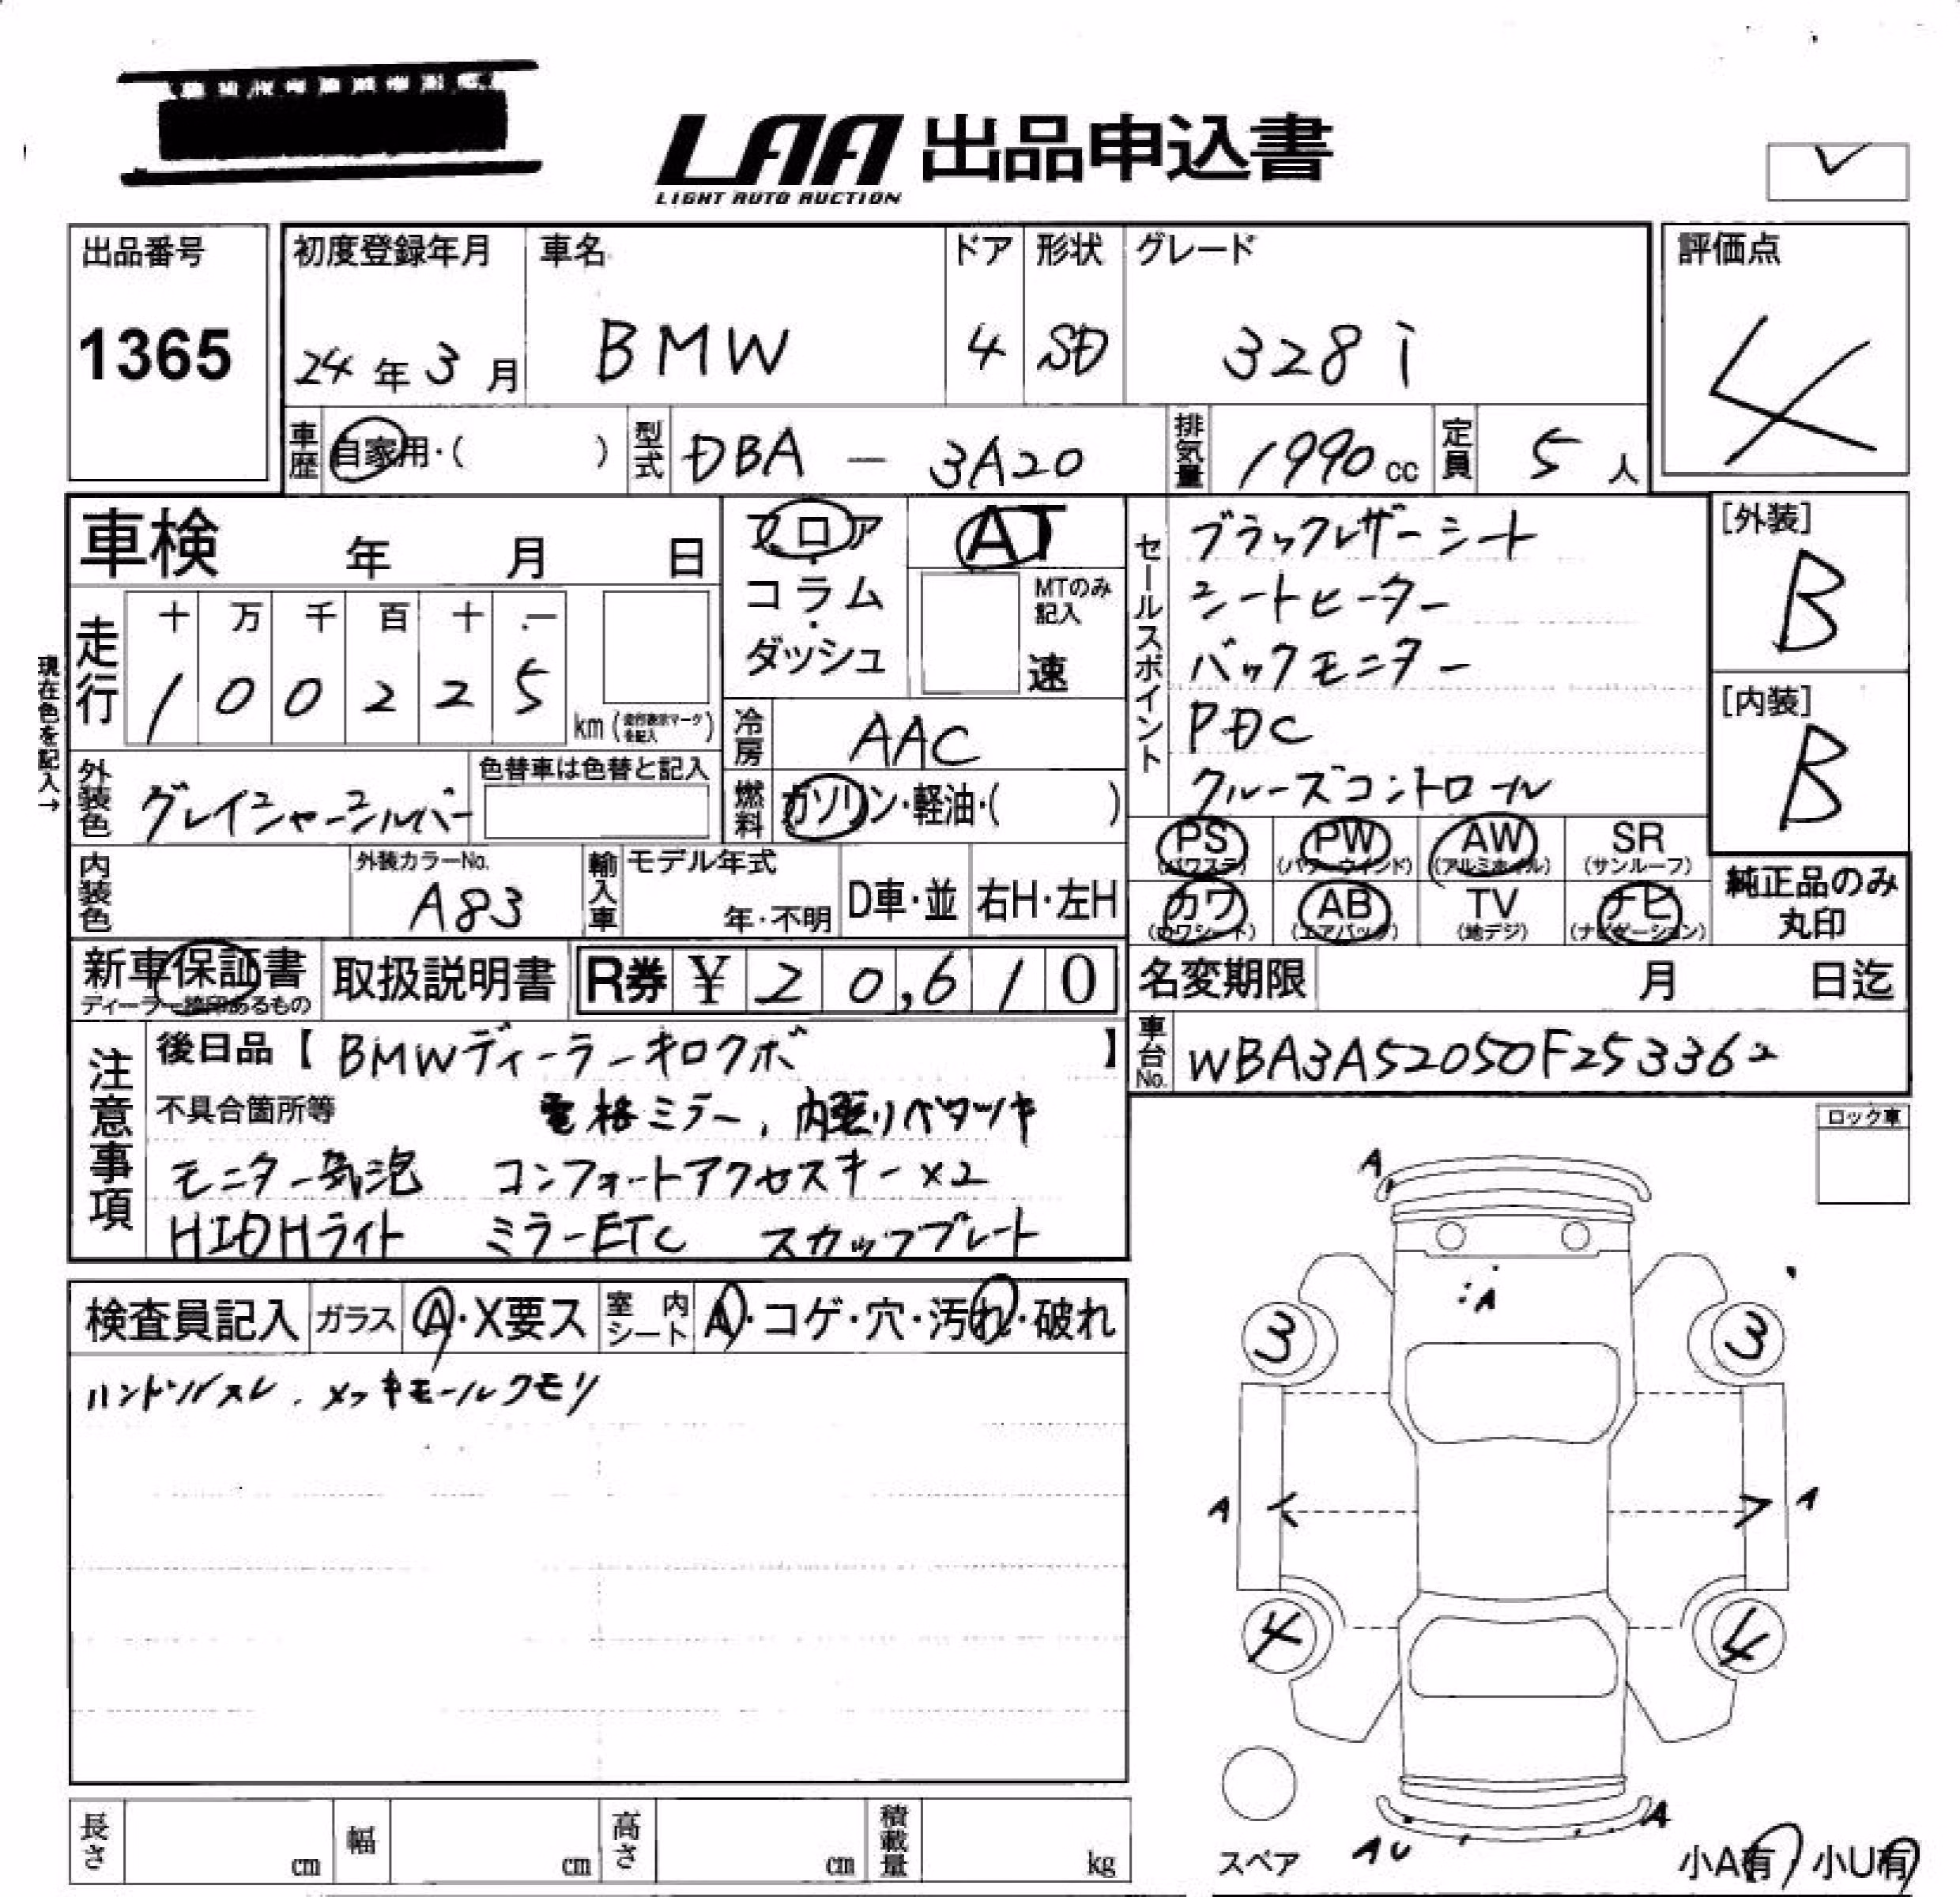 LAA 出品申込書
LIGHT AUTO AUCTION
出品番号
1365
初度登録年月
24年3月
車名
BMW
ドア
4
形状
SD
グレード
328i
評価点
4
車歴 自家用・( )
型式 DBA - 3A20
排気量 1990cc
定員 5人
車検 年 月 日
フロア・コラム・ダッシュ
AT
MTのみ記入
速
セールスポイント
ブラックレザーシート
シートヒーター
バックモニター
PDC
クルーズコントロール
[外装]
B
[内装]
B
現在色を記入→
走行
十 万 千 百 十 一
1 0 0 2 2 5 km
冷房 AAC
外装色 グレイシャーシルバー
色替車は色替と記入
燃料 ガソリン・軽油・( )
PS (パワステ) PW (パワーウインド) AW (アルミホイル) SR (サンルーフ)
カワ (カワシート) AB (エアバッグ) TV (地デジ) ナビ (ナビゲーション)
純正品のみ丸印
内装色
外装カラーNo.
A83
輸入車
モデル年式
年・不明
D車・並
右H・左H
新車保証書
ディーラー捺印あるもの
取扱説明書
R券 ¥20,610
名変期限 月 日迄
車台No. WBA3A52050F253362
注意事項
後日品【BMWディーラーキロクボ】
不具合箇所等 電格ミラー、内張りベタツキ
モニター気泡 コンフォートアクセスキー×2
HIDHライト ミラーETC スカッフプレート
ロック車
検査員記入 ガラス A・X要ス 室内シート A・コゲ・穴・汚れ・破れ
ハンドルスレ、メッキモールクモリ
A
A
3 3
A A
4 4
A
AU
スペア
小A有 小U有
長さ cm 幅 cm 高さ cm 積載量 kg